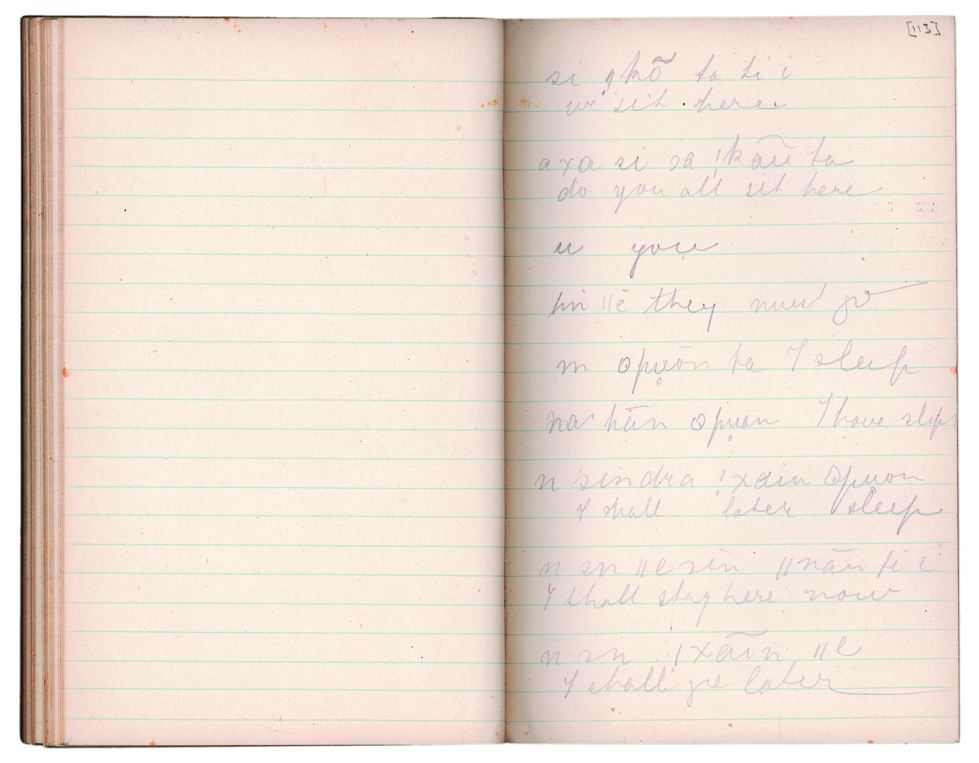 [113]
si ǃkõ ta ti i
we sit here
axa si sa ǃkãũ ta
do you all sit here
u you
hin ǁē they now go
m opuōn ta I sleep
na hān opuon I have slept
n sindra ǃxāin opuon
I shall later sleep
n sn ǁe sin ǁnān ti i
I shall stay here now
n sn ǀxāin ǁe
I shall go later